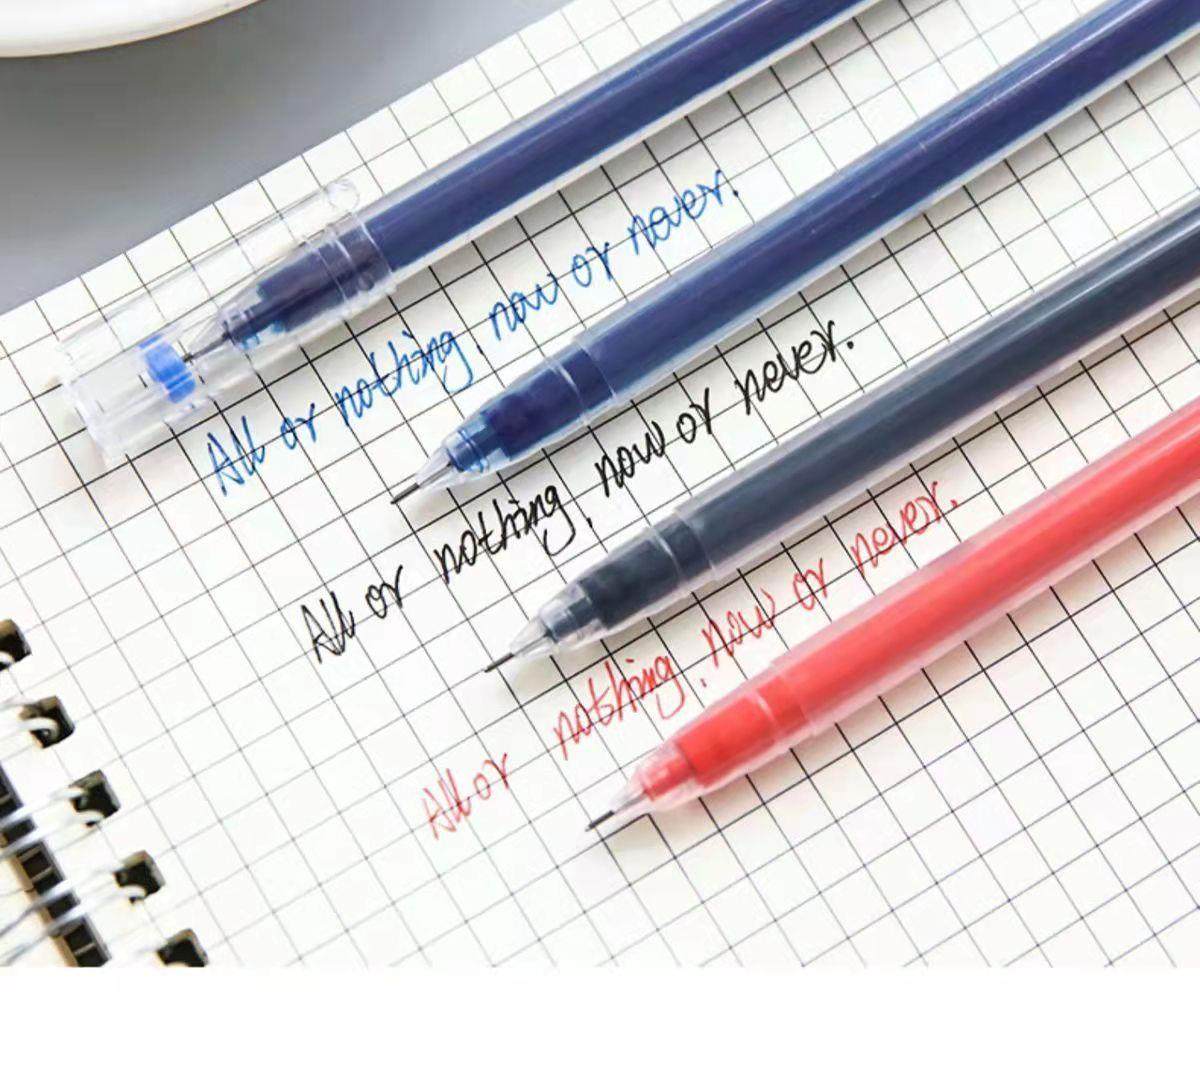 All or nothing, now or never.
All or nothing, now or never.
All or nothing, now or never.